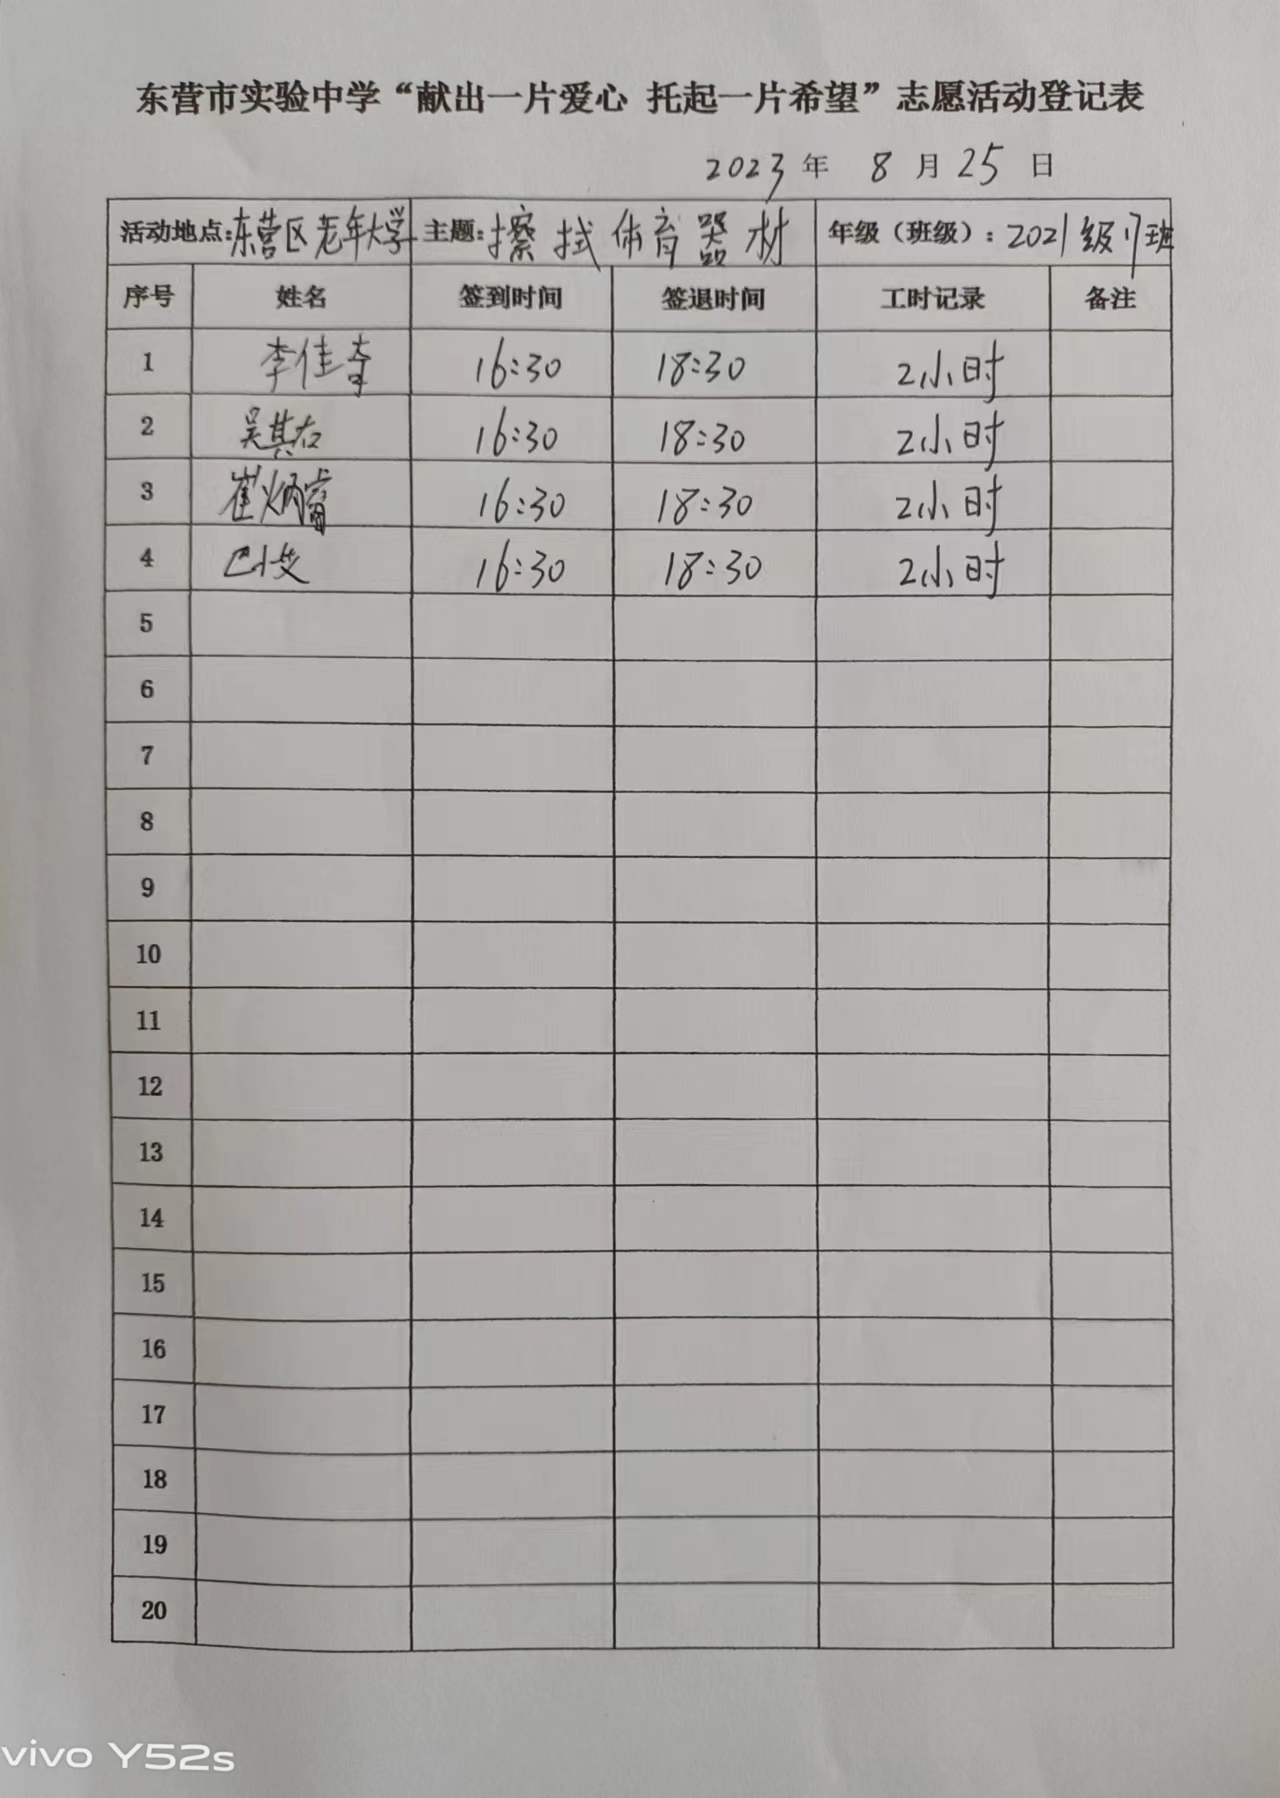 东营市实验中学“献出一片爱心 托起一片希望”志愿活动登记表
2023 年 8 月 25 日
活动地点:东营区老年大学 主题:擦拭体育器材 年级（班级）: 2021级17班
序号 姓名 签到时间 签退时间 工时记录 备注
1 李佳奇 16:30 18:30 2小时
2 吴其右 16:30 18:30 2小时
3 崔炳睿 16:30 18:30 2小时
4 16:30 18:30 2小时
5
6
7
8
9
10
11
12
13
14
15
16
17
18
19
20
vivo Y52s